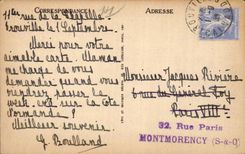 CORRESPONDANCE
ADRESSE
11 bis rue de la Chapelle
Trouville le 1 Septembre
Merci pour votre
aimable carte. Maman
me charge de vous
demander quand vous
viendrez passer le
week end sur la Côte
Normande ?
Meilleur souvenir
G. Boulland
Monsieur Jacques Rivière
6 rue du Général Foy
Paris VIII
32, Rue Paris
MONTMORENCY (S-&-O)